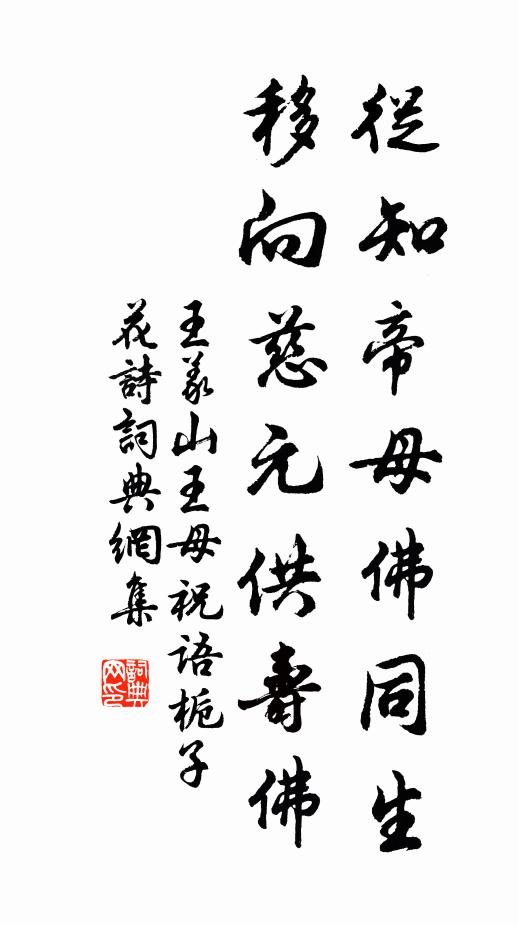 從知帝母佛同生
移向慈元供壽佛
王義山王母祝語栀子
花詩詞典網集
詞典
网印